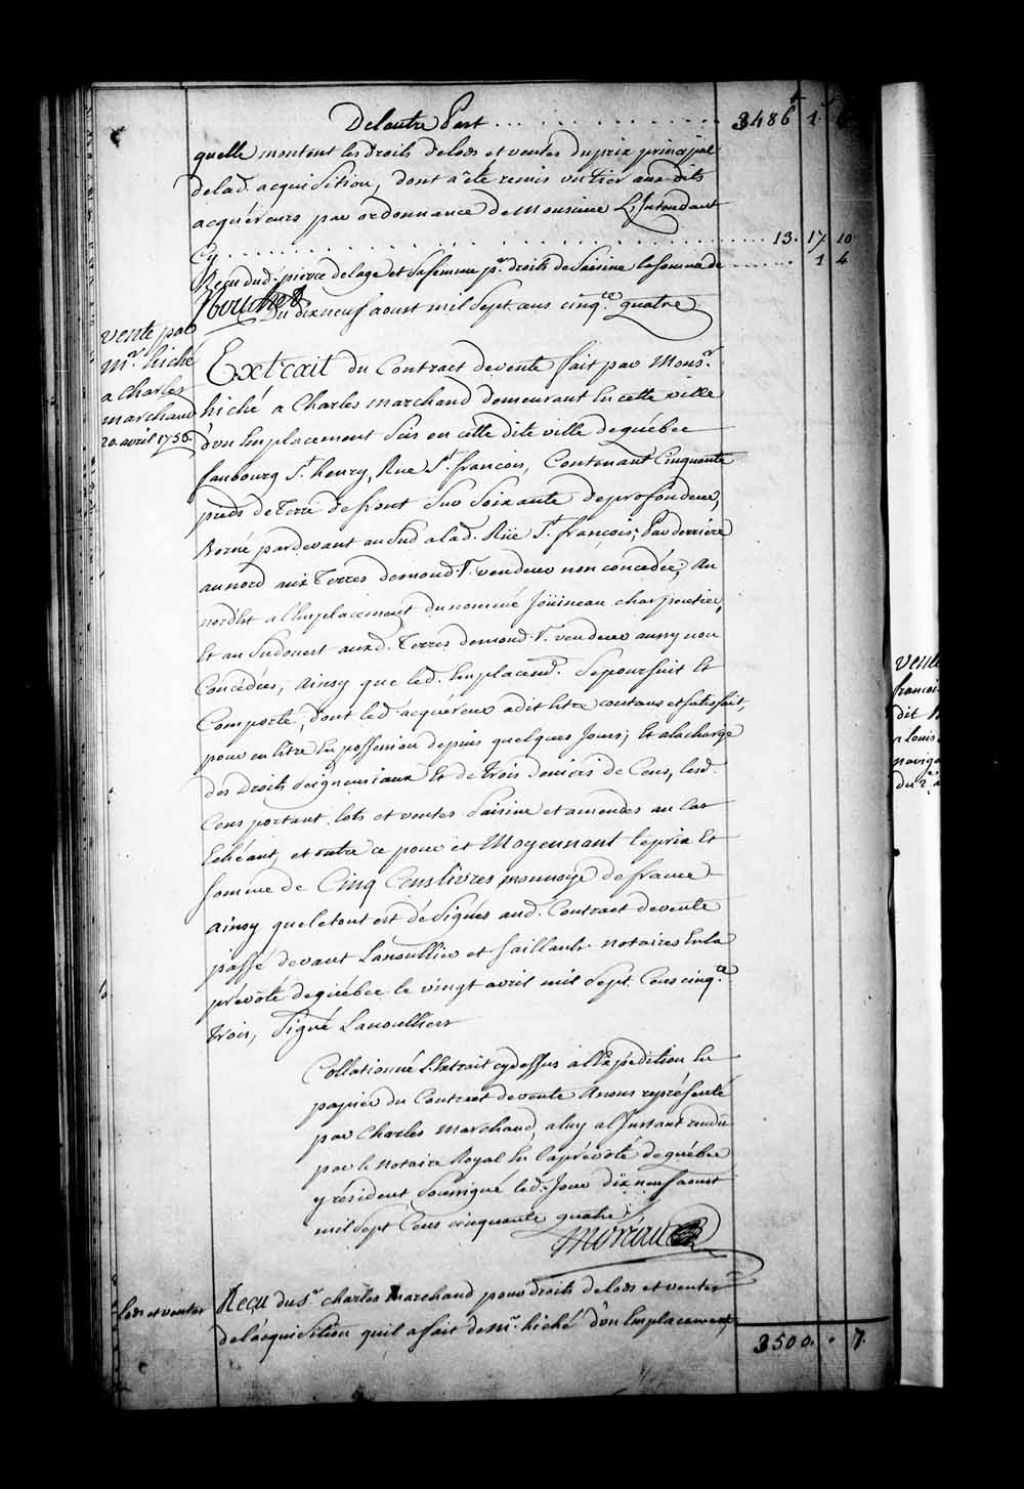 Delautre Part . . . . . . . . . . 3486 1. 6
quelle montent les droits de lods et ventes du prix principal
de lad. acquisition, dont a été remis un tier aux dits
acquéreurs par ordonnance de Monsieur L'Intendant
Cy . . . . . . . . . . . . . . . . 13. 17 10
Reçu dud. pierre delage et sa femme pr. droits de Saisine la somme de . . . . . 1 4
Du dix neuf aoust mil sept cens cinq.te quatre
vente par
mr. hiché
a Charles
marchand
20. avril 1753.
Extrait du Contract de vente fait par Monsr.
hiché a Charles marchand demeurant En cette ville
d'un Emplacement Sis en cette dite ville de québec
faubourg St. henry, Rue St. francois, Contenant Cinquante
pieds de Terre de front Sur Soixante de profondeur,
Borné pardevant au Sud a lad. Rüe St. françois; Par derriere
au nord aux Terres demond. Sr. vendeur non concedée, au
nordest a l'Emplacement du nommé Joüineau charpentier,
Et au Sudouest auxd. Terres demond. Sr. vendeur aussy non
Concédées, ainsy que led. Emplacemt. Se poursuit Et
Comporte, dont led. acquéreur a dit être contans et satisfait,
pour en être En possession depuis quelques Jours; Et a la charge
des droits Seigneuriaux Et de trois deniers de Cens, lesd.
Cens portant lots et ventes Saisine et amendes au Cas
Echéant, et outre ce pour et Moyennant le prix Et
Somme de Cinq Cens livres monnoye de france
ainsy que le tout est désigné aud. Contract de vente
passé devant Lanoullier et Saillant notaires En la
prévôté de québec le vingt avril mil Sept Cens cinq.te
trois, Signé Lanoullier
Collationné L'Extrait cy dessus a l'Expedition En
papier du Contract de vente a nous représenté
par Charles Marchand, a luy a l'Instant rendu
par le notaire Royal En la prévôté de québec
y résident Soussigné led. Jour dix neuf aoust
mil Sept Cens cinquante quatre.
Moreau
lods et ventes
Reçu du Sr. charles Marchand pour droits de lods et ventes
de l'acquisition quil a fait de mr. hiché d'un Emplacement
3500. . 7.
vente
francoi
dit
a louis
naviga
du 2.e a